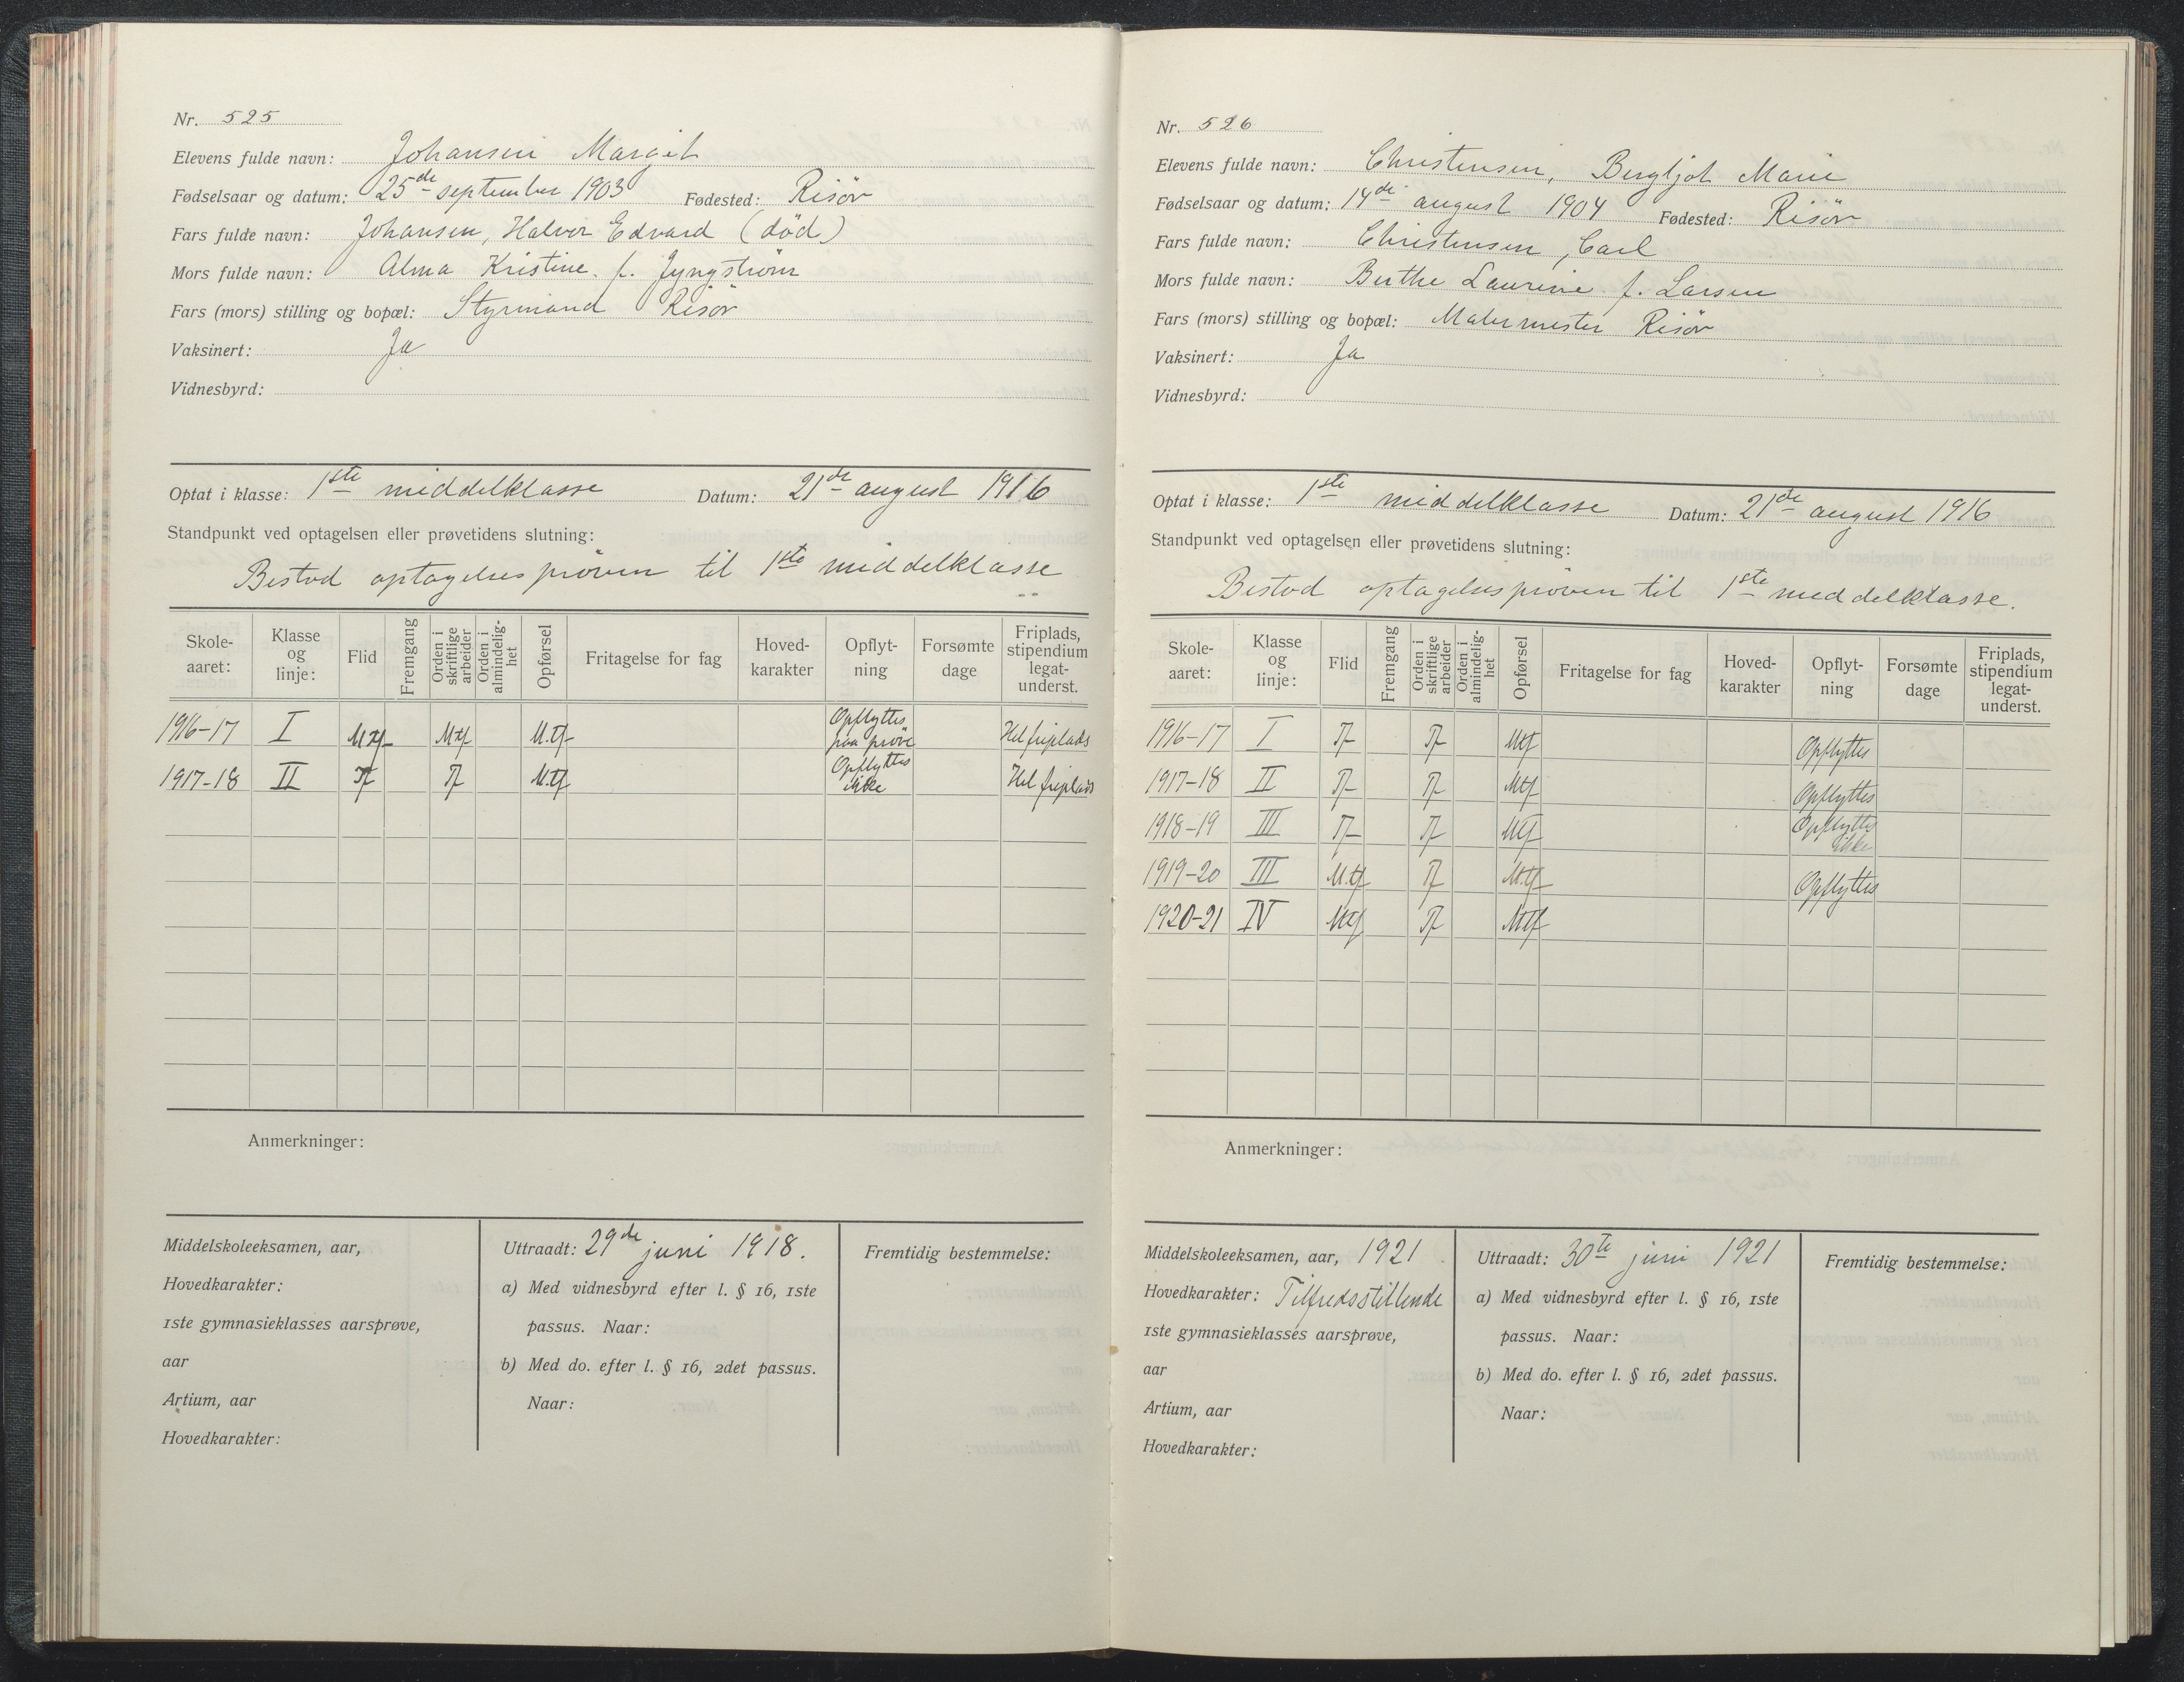 Nr. 525
Elevens fulde navn: Johansen Margit
Fødselsaar og datum: 25de september 1903 Fødested: Risør
Fars fulde navn: Johansen, Halvor Edvard (død)
Mors fulde navn: Alma Kristine f. Jyngstrøm
Fars (mors) stilling og bopæl: Styrmand Risør
Vaksinert: Ja
Vidnesbyrd:
Optat i klasse: 1ste middelklasse Datum: 21de august 1916
Standpunkt ved optagelsen eller prøvetidens slutning:
Bestod optagelsesprøven til 1ste middelklasse
Skole-aaret: Klasse og linje: Flid Fremgang Orden i skriftlige arbeider Orden i almindelig-het Opførsel Fritagelse for fag Hoved-karakter Opflyt-ning Forsømte dage Friplads, stipendium legat-underst.
1916-17 I Mtf Mtf M.tf Opflyttes paa prøve Hel friplads
1917-18 II Tf Tf M.tf Opflyttes ikke Hel friplads
Anmerkninger:
Middelskoleeksamen, aar,
Hovedkarakter:
1ste gymnasieklasses aarsprøve,
aar
Artium, aar
Hovedkarakter:
Uttraadt: 29de juni 1918.
a) Med vidnesbyrd efter l. § 16, 1ste
passus. Naar:
b) Med do. efter l. § 16, 2det passus.
Naar:
Fremtidig bestemmelse:
Nr. 526
Elevens fulde navn: Christensen, Bergljot Marie
Fødselsaar og datum: 14de august 1904 Fødested: Risør
Fars fulde navn: Christensen, Carl
Mors fulde navn: Berthe Laurine f. Larsen
Fars (mors) stilling og bopæl: Malermester Risør
Vaksinert: Ja
Vidnesbyrd:
Optat i klasse: 1ste middelklasse Datum: 21de august 1916
Standpunkt ved optagelsen eller prøvetidens slutning:
Bestod optagelsesprøven til 1ste middelklasse.
Skole-aaret: Klasse og linje: Flid Fremgang Orden i skriftlige arbeider Orden i almindelig-het Opførsel Fritagelse for fag Hoved-karakter Opflyt-ning Forsømte dage Friplads, stipendium legat-underst.
1916-17 I Tf Tf Mtf Opflyttes
1917-18 II Tf Tf Mtf Opflyttes
1918-19 III Tf Tf Mtf Opflyttes ikke
1919-20 III M.tf Tf M.tf Opflyttes
1920-21 IV Mtf Tf Mtf
Anmerkninger:
Middelskoleeksamen, aar, 1921
Hovedkarakter: Tilfredsstillende
1ste gymnasieklasses aarsprøve,
aar
Artium, aar
Hovedkarakter:
Uttraadt: 30te juni 1921
a) Med vidnesbyrd efter l. § 16, 1ste
passus. Naar:
b) Med do. efter l. § 16, 2det passus.
Naar:
Fremtidig bestemmelse: